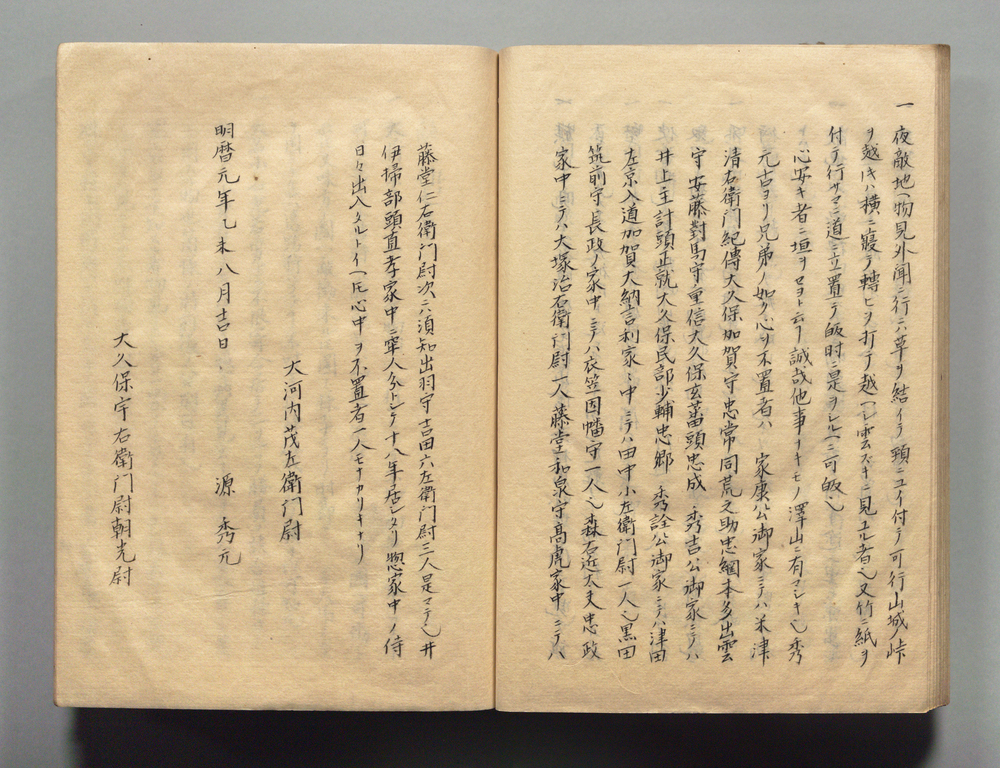 一 夜敵地ヘ物見外聞ニ行ハ草ヲ結イテ頸ニユイ付テ可行山城ノ峠
ヲ越トキハ横ニ寝テ轉ヒヲ打テ越ヘシ雲スキニ見ユル者也又竹ニ紙ヲ
付テ行サマニ道ニ立置テ皈時ニ是ヲシルヘニ可皈也
心安キ者ニ垣ヲセヨト云 誠哉他事ナキモノ澤山ニ有マシキ也秀
元古ヨリ兄弟ノ如ク心ヲ不置者ハ 家康公御家ニテハ米津
清右衛門紀傳大久保加賀守忠常同荒之助忠綱本多出雲
守安藤對馬守重信大久保玄蕃頭忠成 秀吉公御家ニテハ
井上主計頭正就大久保民部少輔忠郷 秀詮公御家ニテハ津田
左京入道加賀大納言利家ノ中ニテハ田中小左衛門尉一人也黒田
筑前守長政ノ家中ニテハ衣笠因幡守一人也森右近太夫忠政
家中ニテハ大塚治右衛門尉一人藤堂和泉守高虎家中ニテハ
藤堂仁右衛門尉次ニ須知出羽守吉田六左衛門尉三人是マテ也井
伊掃部頭直孝家中ニ牢人分トシテ十八年居シタリ惣家中ノ侍
日々出入タルト イヘ𪜈心中ヲ不置者一人モナカリキナリ
大河内茂左衛門尉
明暦元年乙未八月吉日 源 秀元
大久保宇右衛門尉朝光尉